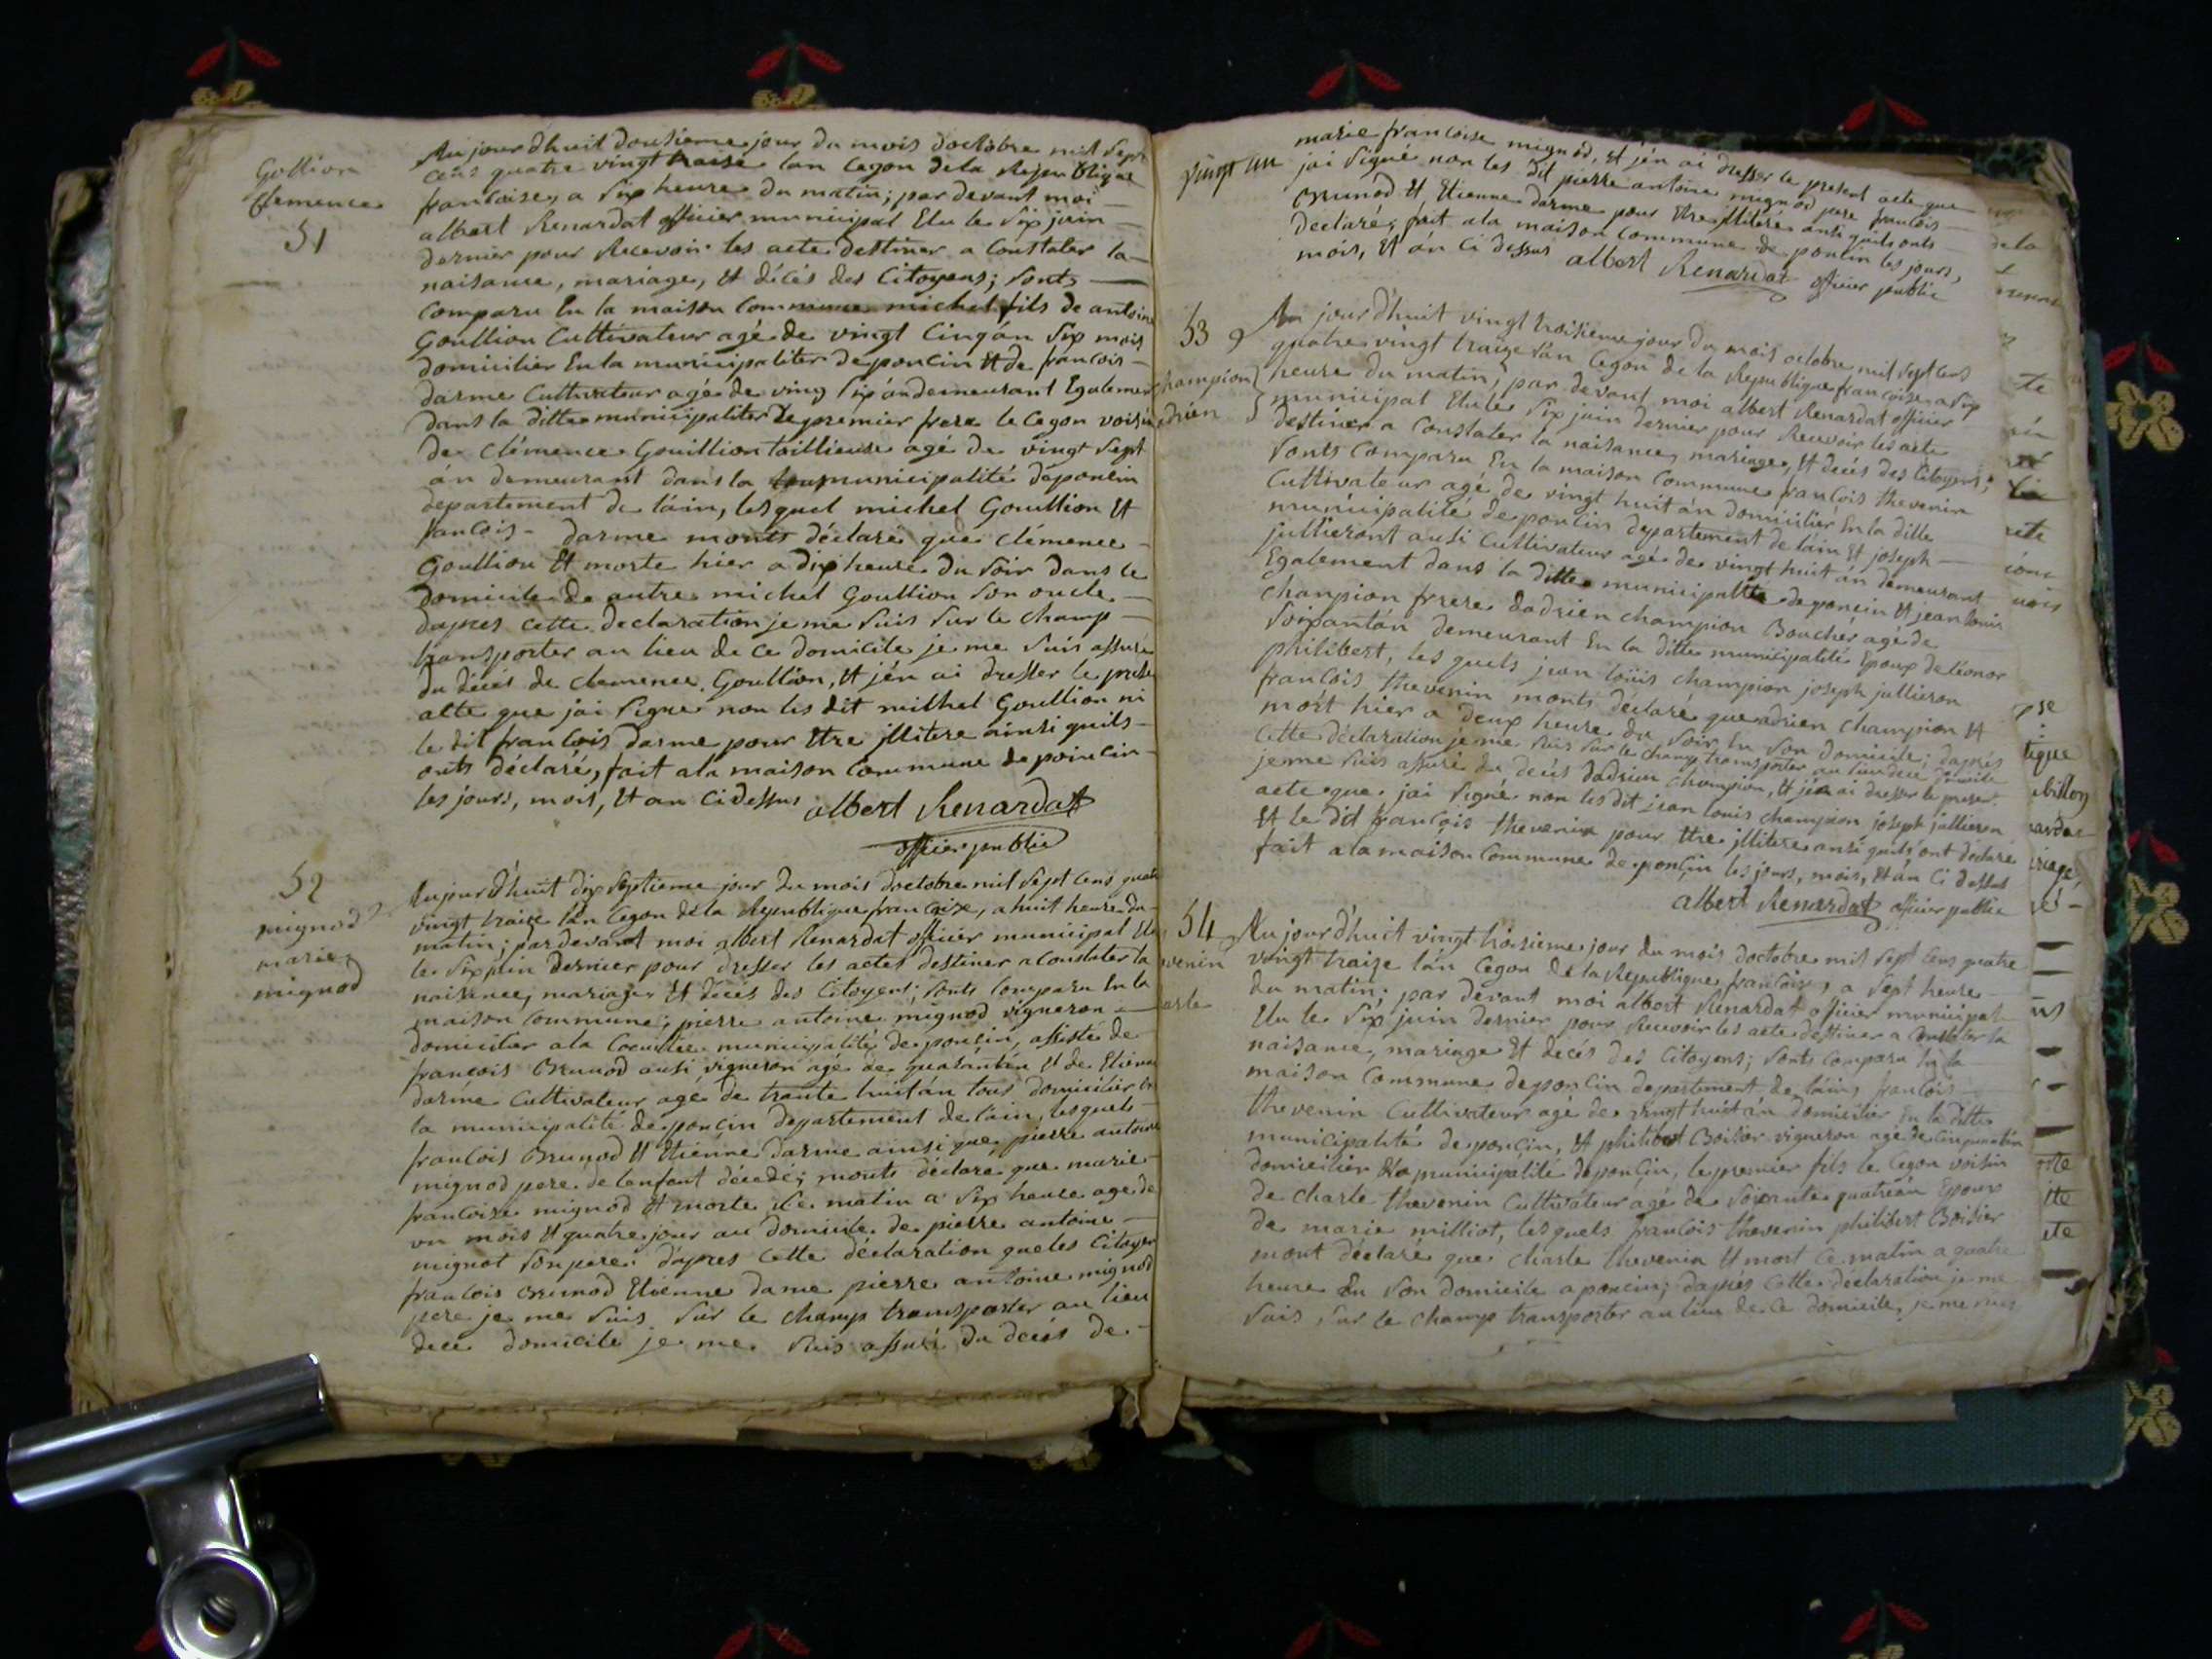 Gollion
Clemence
51
Aujourdhuit dousieme jour du mois doctobre mil sept
cens quatre vingt traise lan cegon dela Republique
francoise, a six heure du matin; par devant moi
albert Renardat officier municipal Elu le six juin
dernier pour Recevoir les acte destiner a Constater la
naisance, mariage, et décés des Citoyens; sonts
comparu En la maison Commune michel fils de antoine
Goullion Cultivateur agé de vingt Cinq án six mois
domicilier En la municipaliter de poncin et de francois
darme Cultivateur agé de ving six án demeurant Egalemen
dans la ditte municipaliter le premier frere le cegon voisin
de Clémence Gouillion taillieuse agé de vingt sept
án demeurant dans la municipalité de poncin
departement de láin, lesquel michel Goullion et
francois darme monts déclaré que clémence
Goullion et morte hier a dix heure du soir dans le
domicile de autre michel Goullion son oncle
dapres cette declaration je me suis sur le champ
transporter au lieu de ce domicile je me suis assuré
du décés de clemence Goullion, et jén ai dresser le presen
atte que jai signe non les dit milhel Goullion ni
le dit francois darme pour Etre jllitere ainsi quils
onts déclaré, fait a la maison Commune de poincin
les jours, mois, et an cidessus albert Renardat
officier public
52
mignod
marie
mignod
Aujourd'huit dix septieme jour du mois doctobre mil sept cens quatre
vingt traize lán cegon déla Republique francoise, a huit heure du
matin; par devant moi albert Renardat officier municipal Elu
le six juin dernier pour dresser les actes destiner a Constater la
naisence, mariage et décés des Citoyens; sonts Comparu En la
maison Commune; pierre antoine mignod vigneron
domicilier a la municipalité de poncin, assisté de
francois Brunod ausi vigneron agé de quarántán et de Etienne
darme Cultivateur agé de trante huit án tous domicilier En
la municipalité de poncin departement de láin, lesquels
francois Brunod et Etiénne darme ainsi que pierre antoine
mignod pere de lenfant décedé; monts déclare que marie
francoise mignod et morte ce matin a six heure age de
un mois et quatre jour au domicile de pierre antoine
mignot son pere. dápres cette déclaration que les Citoyen
francois Brunod Etienne dame pierre antoine mignod
pere je me suis sur le champ transporter au lieu
de ce domicile je me suis assuré du decés de
vingt un
marie francoise mignod, et jén ai dresser le present acte que
jai signé non les dit pierre antoine mignod pere francois
Brunod et Etienne darme pour Etre jllitéré ansi quils onts
declaré, fait a la maison commune de pontin les jours,
mois, et án ci dessus albert Renardat officier public
53
hampion
adrien
Au jourd'huit vingt troisieme jour du mois octobre mil sept cens
quatre vingt traize lán cegon de la Republique francoise a six
heure du matin, par devant moi albert Renardat officier
municipal Elu le six juin dernier pour Recevoir les acte
destiner a Constater la naisance, mariage, et decés des Citoyens;
sonts Comparu En la maison Commune francois thevenin
Cultivateur agé de vingt huit án domicilier En la ditte
municipalité de poncin departement de láin et joseph
jullieront ausi Cultivateur agé de vingt huit án demeurant
Egalement dans la ditte municipalité de poncin et jean louis
chanpion frrere dadrien champion Boucher agé de
soixantán demeurant En la ditte municipalité Epoux de léonor
philibert, les quels jean loüis champion joseph jullieron
francois thevenin monts déclaré que adrien champion et
mort hier a deux heure du soir En son domicile; dáprés
cette déclaration je me suis sur le champ transporter au lieu de ce domicile
je me suis assuré du decés dadrien champion, et jén ai dresser le presen
acte que jai signé non les dit jean louis champion joseph jullieron
et le dit francois thevenin pour Etre jllitere ansi quils ont declaré
fait a la maison Commune de poncin les jours, mois, et án ci dessus
albert Renardat officier public
54
venin
arle
Aujourd'huit vingt troisieme jour du mois doctobre mil sept cens quatre
vingt traize lán cegon de la Republique francoise, a sept heure
du matin; par devant moi albert Renardat officier municipal
Elu le six juin dernier pour Recevoir les acte destiner a Constater la
naisance, mariage et decés des Citoyens; sonts Comparu En la
maison Commune de poncin departement de láin, francois
thevenin Cultivateur agé de vingt huit án domicilier En la ditte
municipalité de poncin, et philibert Boisier vigneron agé de cinquantán
domicilier municipalité de poncin, le premier fils le cegon voisin
de charle thevenin Cultivateur agé de soixante quatre án Epoux
de marie milliot, lesquels francois thevenin philibert Boisier
mont déclaré que charle thevenin et mort ce matin a quatre
heure En son domicile a poncin; dáprés cette déclaration je me
suis sur le champ transporter au lieu de ce domicile, je me suis